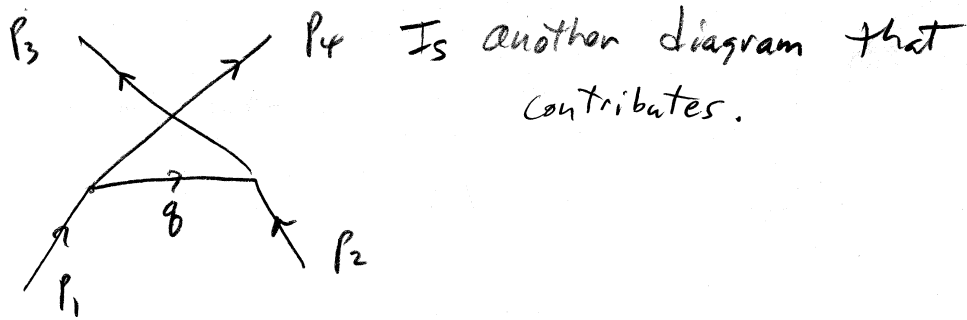 P3 P4 Is another diagram that
contributes.
q
P2
P1